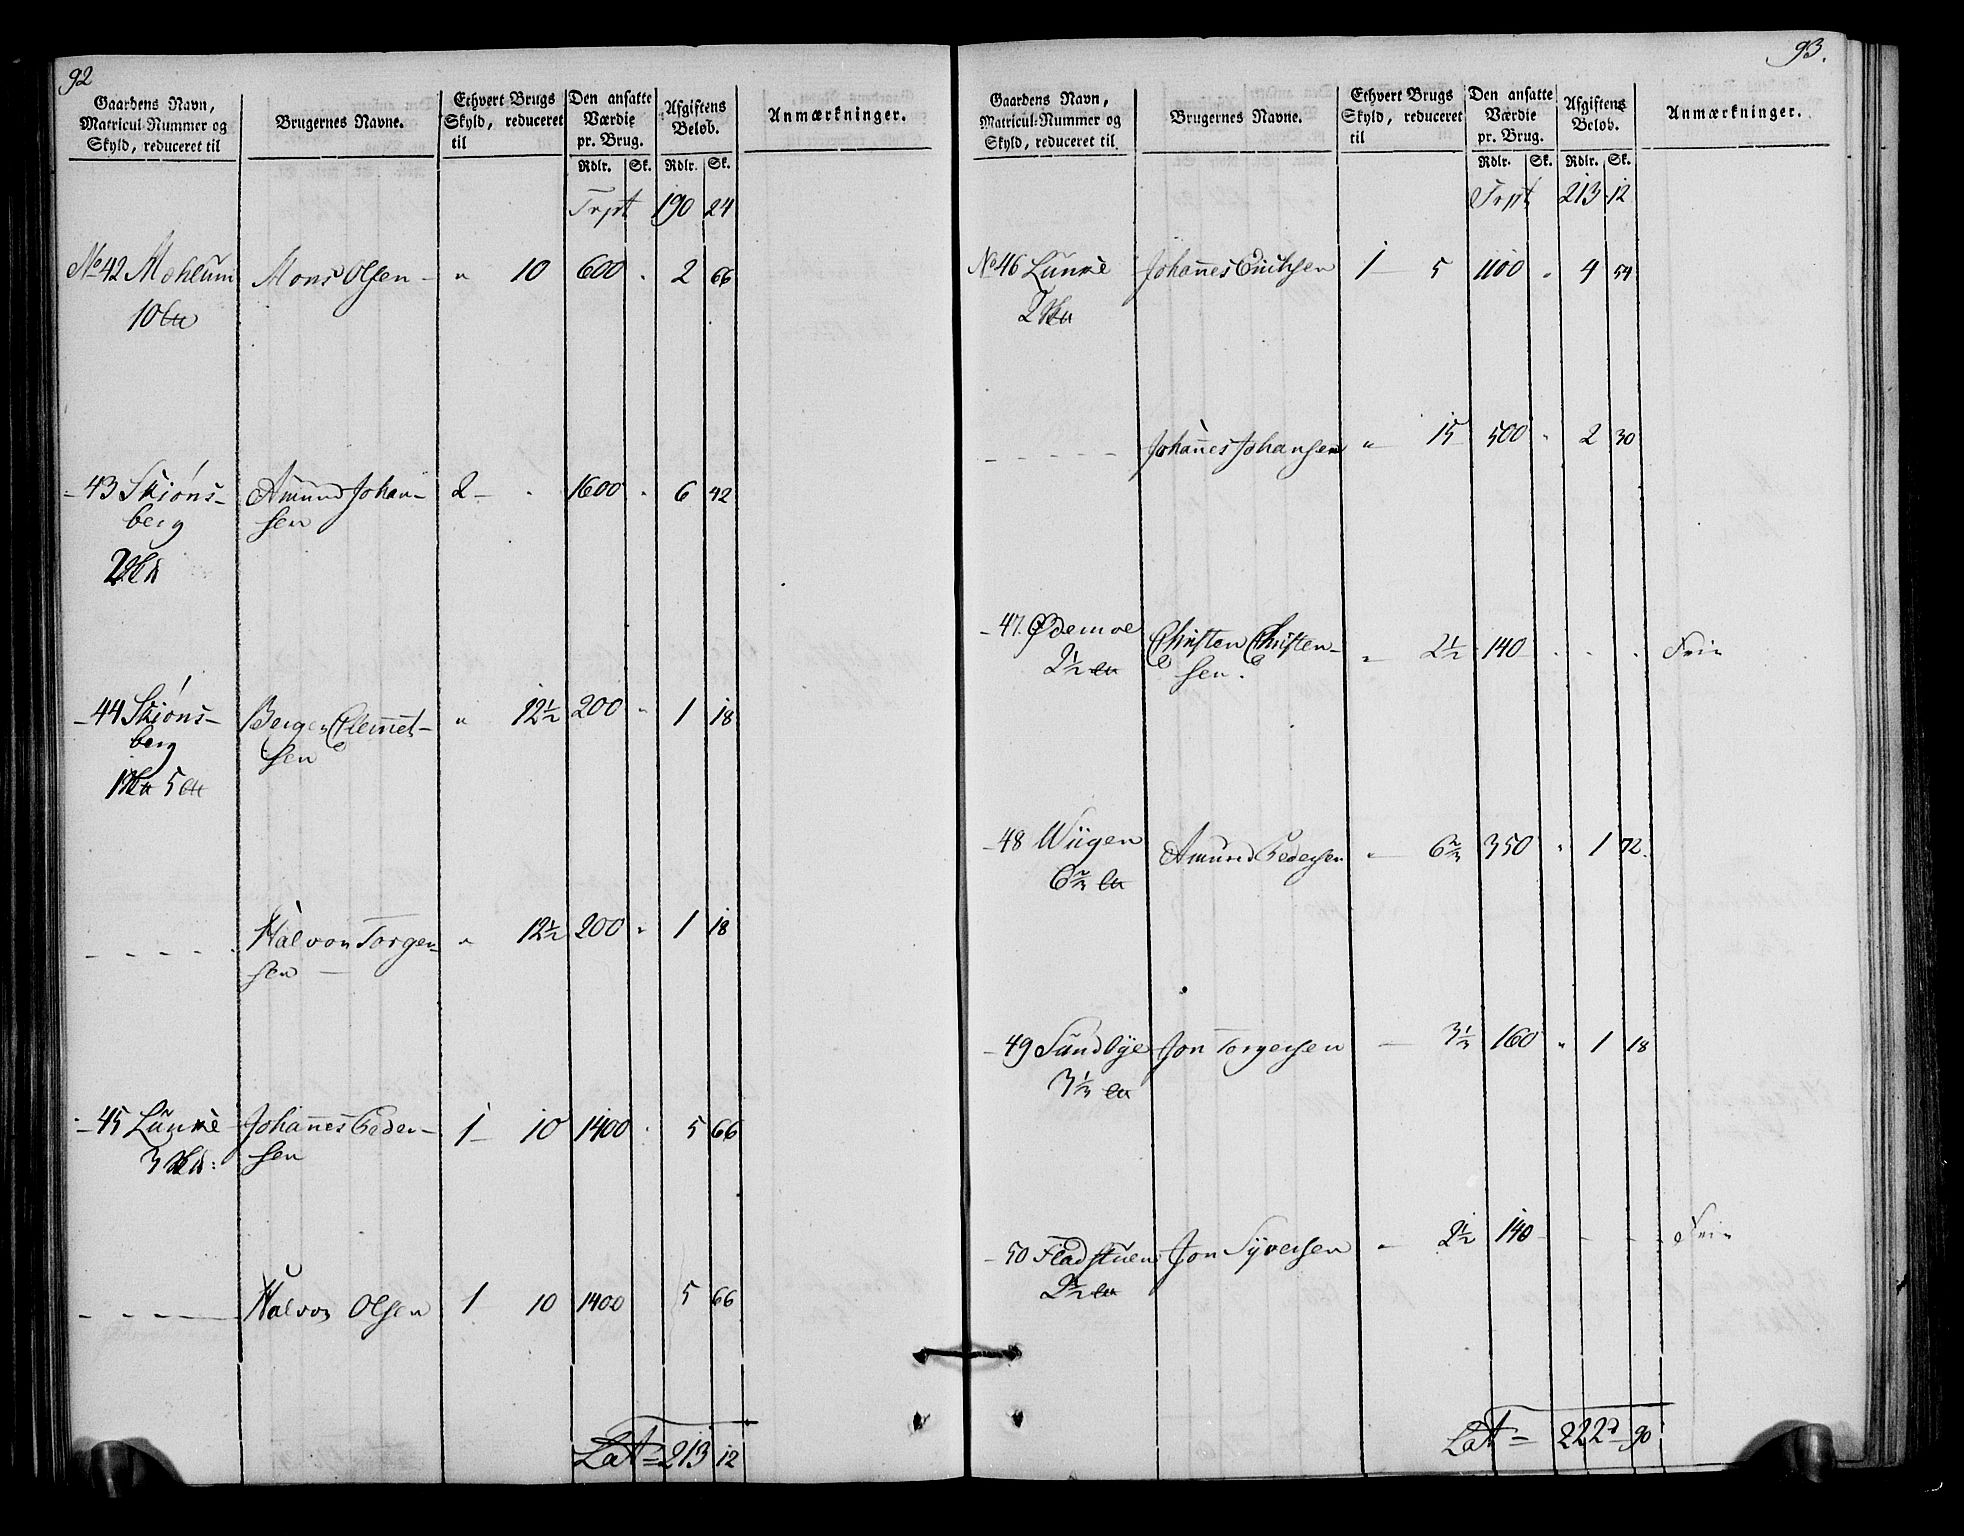 92
Gaardens Navn, Matricul-Nummer og Skyld, reduceret til
Brugernes Navne.
Ethvert Brugs Skyld, reduceret til
Den ansatte Værdie pr. Brug.
Afgiftens Beløb.
Anmærkninger.
Rdlr. Sk. Rdlr. Sk.
Trpt 190 24
No 42 Mohlum Mons Olsen - " 10 600 " 2 66
10 Lu
- 43 Skiøns- Amund Johan- 2 - " 1600 " 6 42
berg sen
2 Hd
- 44 Skiøns- Berger Clemet- " 12½ 200 " 1 18
berg sen
1 Hd 5 Lu
- - - - Halvor Torger- " 12½ 200 " 1 18
sen
- 45 Lunke Johannes Peder- 1 - 10 1400 " 5 66
3 Hd: sen
- - - - Halvor Olsen 1 10 1400 5 66
Lat = 213 12
93.
Gaardens Navn, Matricul-Nummer og Skyld, reduceret til
Brugernes Navne.
Ethvert Brugs Skyld, reduceret til
Den ansatte Værdie pr. Brug.
Afgiftens Beløb.
Anmærkninger.
Rdlr. Sk. Rdlr. Sk.
Trpt 213 12
No 46 Lunke Johannes Erichsen 1 - 5 1100 " 4 54
2 Hd
- - - - - Johannes Johansen " 15 500 " 2 30
- 47. Ødemoe Christen Christen- " 2½ 140 " " " Frie
2½ Lu sen.
- 48 Wiigen Amund Pedersen " 6⅔ 350 " 1 72.
6⅔ Lu
- 49 Sundbye Jon Torgersen - 3⅓ 160 " 1 18
3⅓ Lu
- 50 Fladstuen Jon Syversen " 2½ 140 - - - Frie
2½ Lu
Lat = 222 90